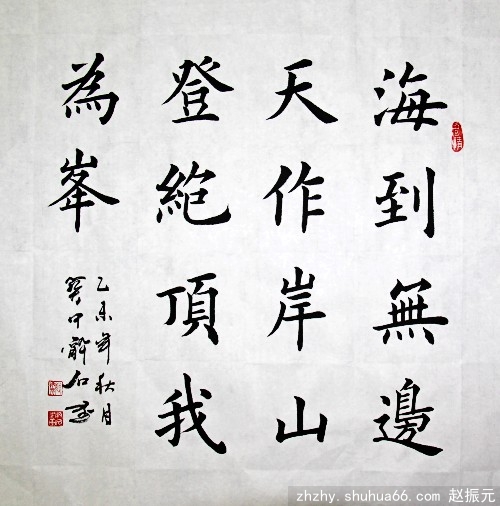 海到無邊
天作岸山
登絶頂我
為峯
乙未年秋月
zhzhy.shuhua66.com 赵振元